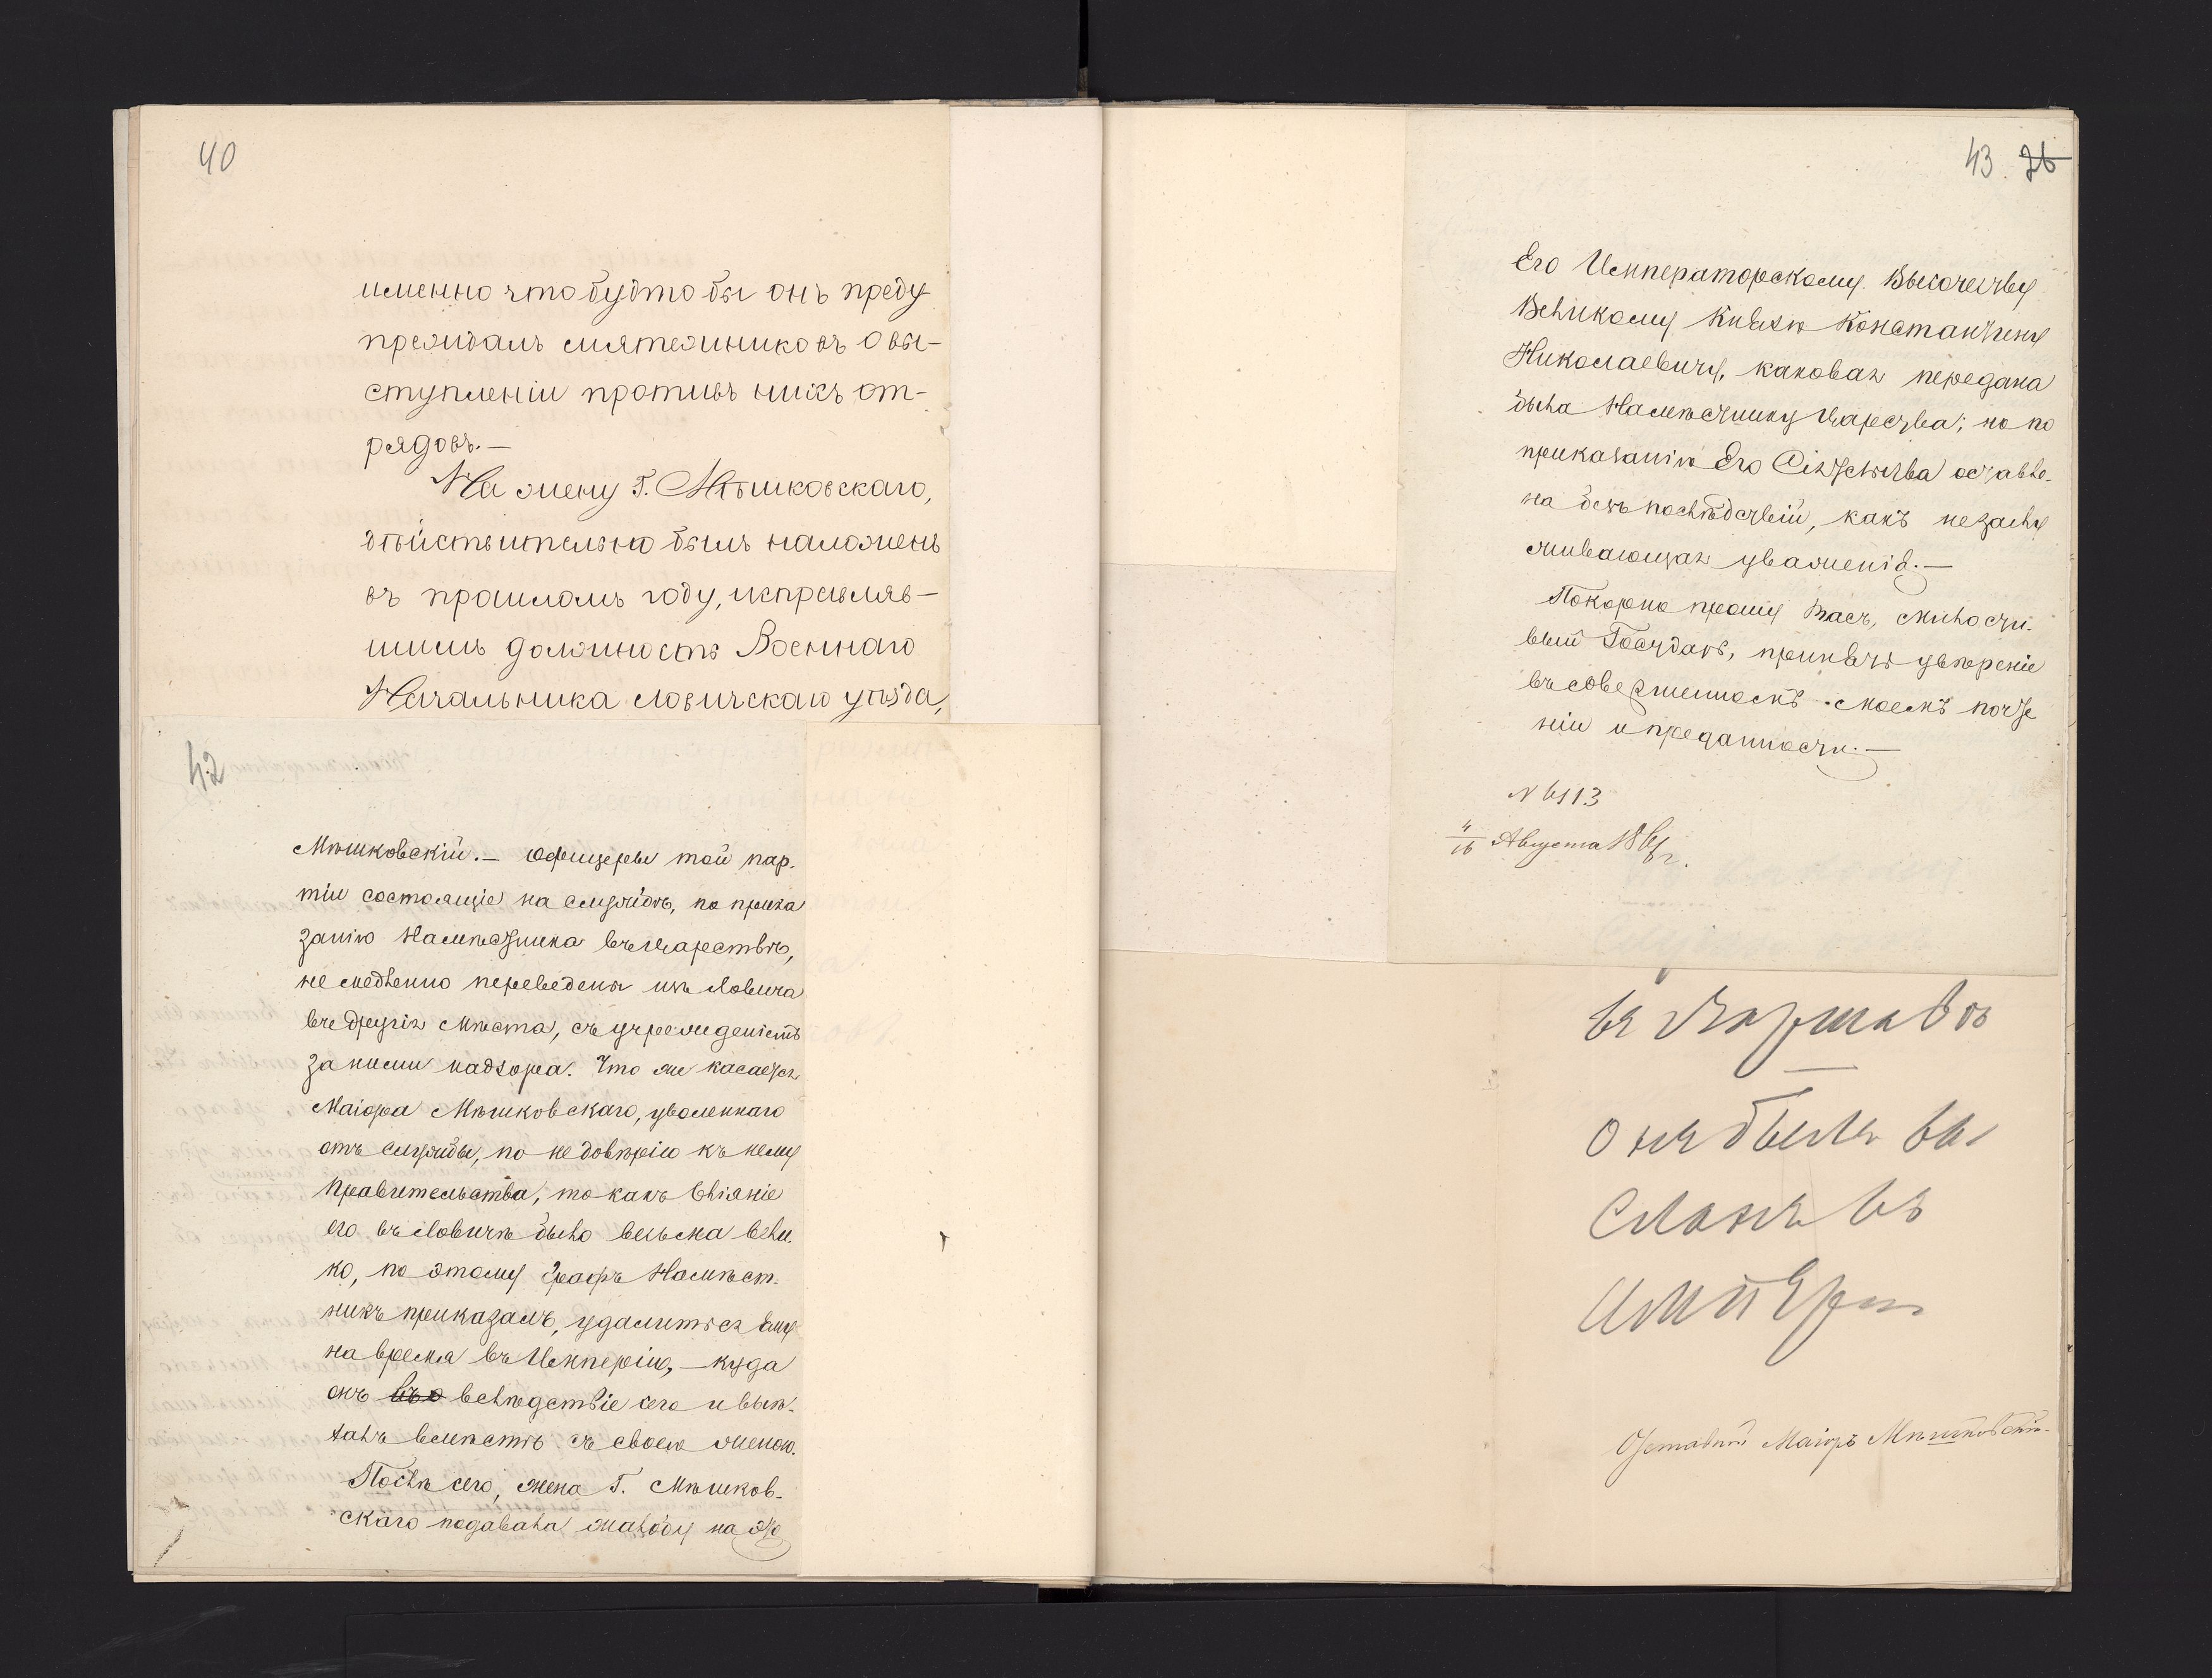 40
именно что будто бы онъ преду
преждалъ мятежниковъ о вы-
ступленіи противъ нихъ от-
рядовъ.—
На жену Г. Мѣшковскаго,
дѣйствительно былъ наложенъ
въ прошломъ году, исправляв-
шимъ должность Военнаго
Начальника Ловичскаго уѣзда,
42
Мѣшковскій.— Офицеры той пар-
тіи состоящіе на службѣ, по прика
занію Намѣстника въ Царствѣ,
не медленно переведены изъ Ловича
въ другія мѣста, съ учрежденіемъ
за ними надзора. Что же касается
Маіора Мѣшковскаго, уволеннаго
отъ службы, по недовѣрію къ нему
Правительства, то какъ вліяніе
его въ Ловичѣ было весьма вели-
ко, по этому Графъ Намѣст-
никъ приказалъ, удалиться ему
на время въ Имперію,— куда
онъ вслѣдствіе сего и выѣ-
халъ вмѣстѣ съ своею женою.
Послѣ сего, жена Г. Мѣшков-
скаго подавала жалобу на это
43. 76
Его Императорскому Высочеству
Великому Князю Константину
Николаевичу, каковая передана
была Намѣстнику Царства; но по
приказанію Его Сіятельства оставле-
на безъ послѣдствій, какъ незаслу
живающая уваженія.—
Покорно прошу Васъ, Милости-
вый Государь, принять увѣреніе
въ совершенномъ моемъ почте
ніи и преданности.—
N 6113
4/16 Августа 186 г.
въ Варшавѣ
онъ былъ вы
сланъ въ
Импери
Отставной Маіоръ Мѣшковскій